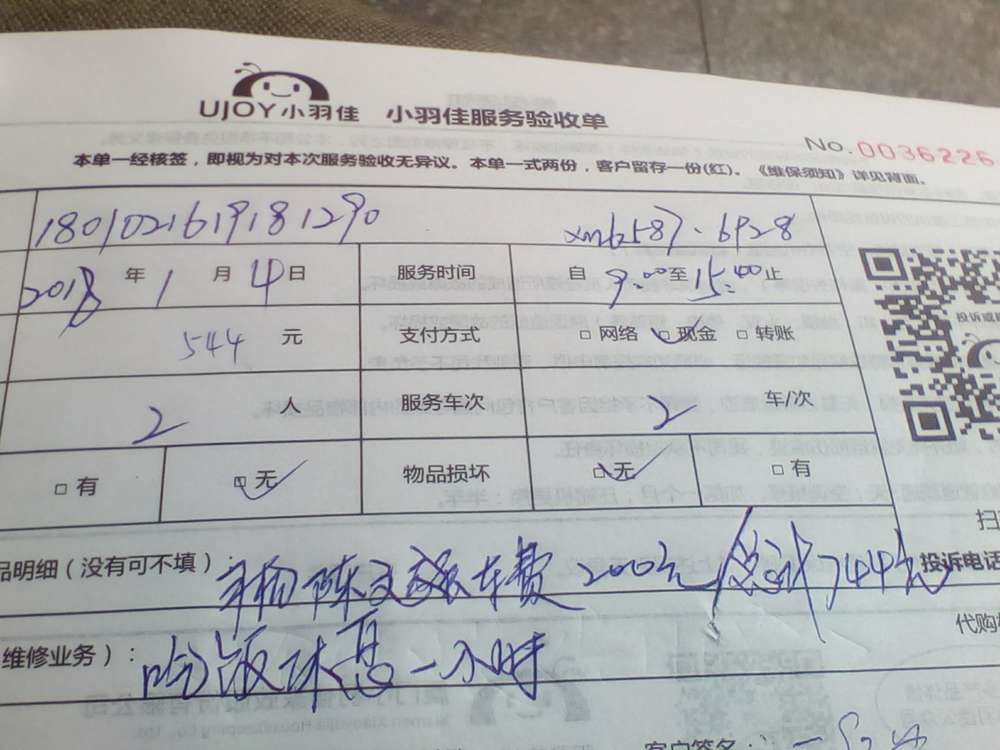 UJOY小羽佳 小羽佳服务验收单
No.0036226
本单一经核签，即视为对本次服务验收无异议。本单一式两份，客户留存一份(红)。《维保须知》详见背面。
1801021619181290
2018年1月4日 服务时间 自9:00至15:00止
投诉或
544元 支付方式 □网络 □现金 □转账
2人 服务车次 2车/次
□有 □无 物品损坏 □无 □有
扫
品明细（没有可不填）： 车费200元/总计744元
投诉电话
代购
维修业务）： 吃饭休息一小时
客户签名：